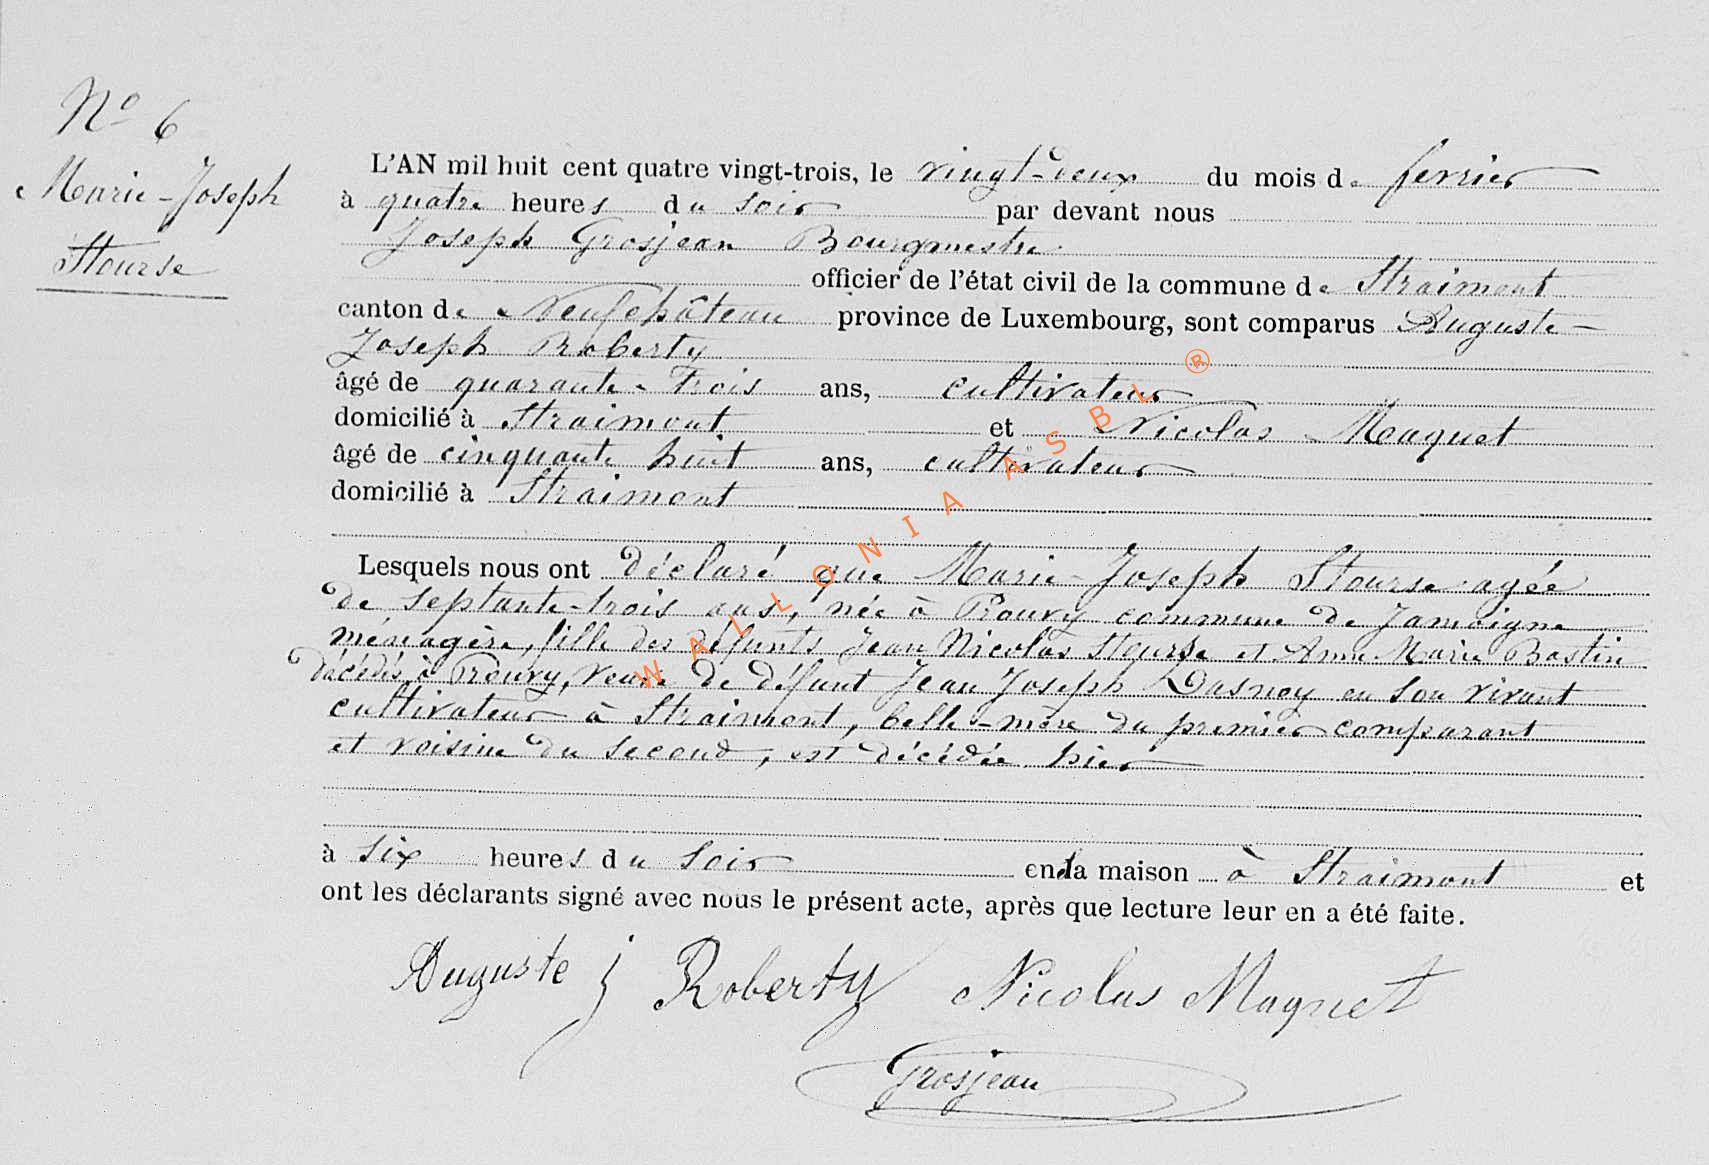 Nº 6
Marie-Joseph
Stourse
L'AN mil huit cent quatre vingt-trois, le vingt-deux du mois de fevrier
à quatre heures du soir par devant nous
Joseph Grosjean Bourgmestre
officier de l'état civil de la commune de Straimont
canton de Neufchâteau province de Luxembourg, sont comparus Auguste-
Joseph Roberty
âgé de quarante-trois ans, cultivateur
domicilié à Straimont et Nicolas Maquet
âgé de cinquante huit ans, cultivateur
domicilié à Straimont
Lesquels nous ont déclaré que Marie-Joseph Stourse agée
de septante-trois ans, née à Prouvy commune de Jamoigne
ménagère, fille des défunts Jean Nicolas Stourse et Anne Marie Bastin
décédés à Prouvy, veuve de défunt Jean Joseph Dasnoy en son vivant
cultivateur à Straimont, belle-mère du premier comparant
et voisine du second, est décédée hier
à six heures du soir en la maison à Straimont et
ont les déclarants signé avec nous le présent acte, après que lecture leur en a été faite.
Auguste j Roberty Nicolas Maquet
Grosjean
WALLONIA ASBL ®